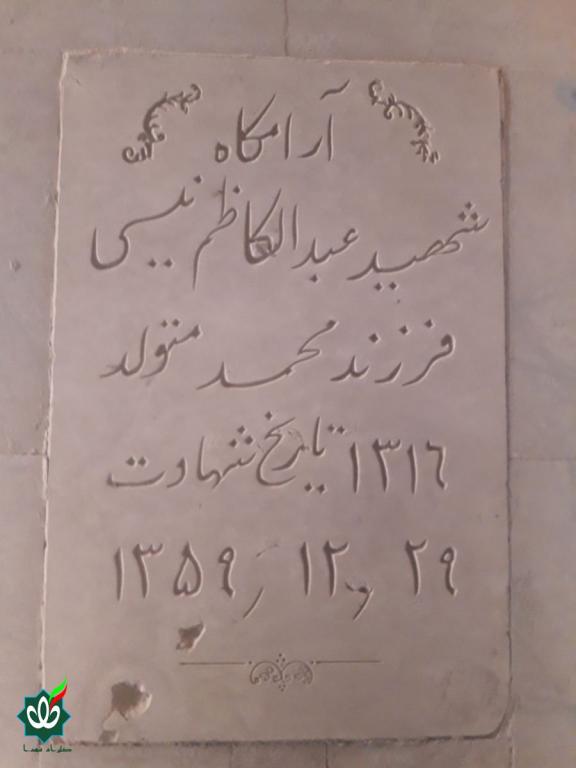 آرامگاه
شهید عبدالکاظم نیسی
فرزند محمد متولد
۱۳۱۶ تاریخ شهادت
۲۹ ٫ ۱۲ ٫ ۱۳۵۹